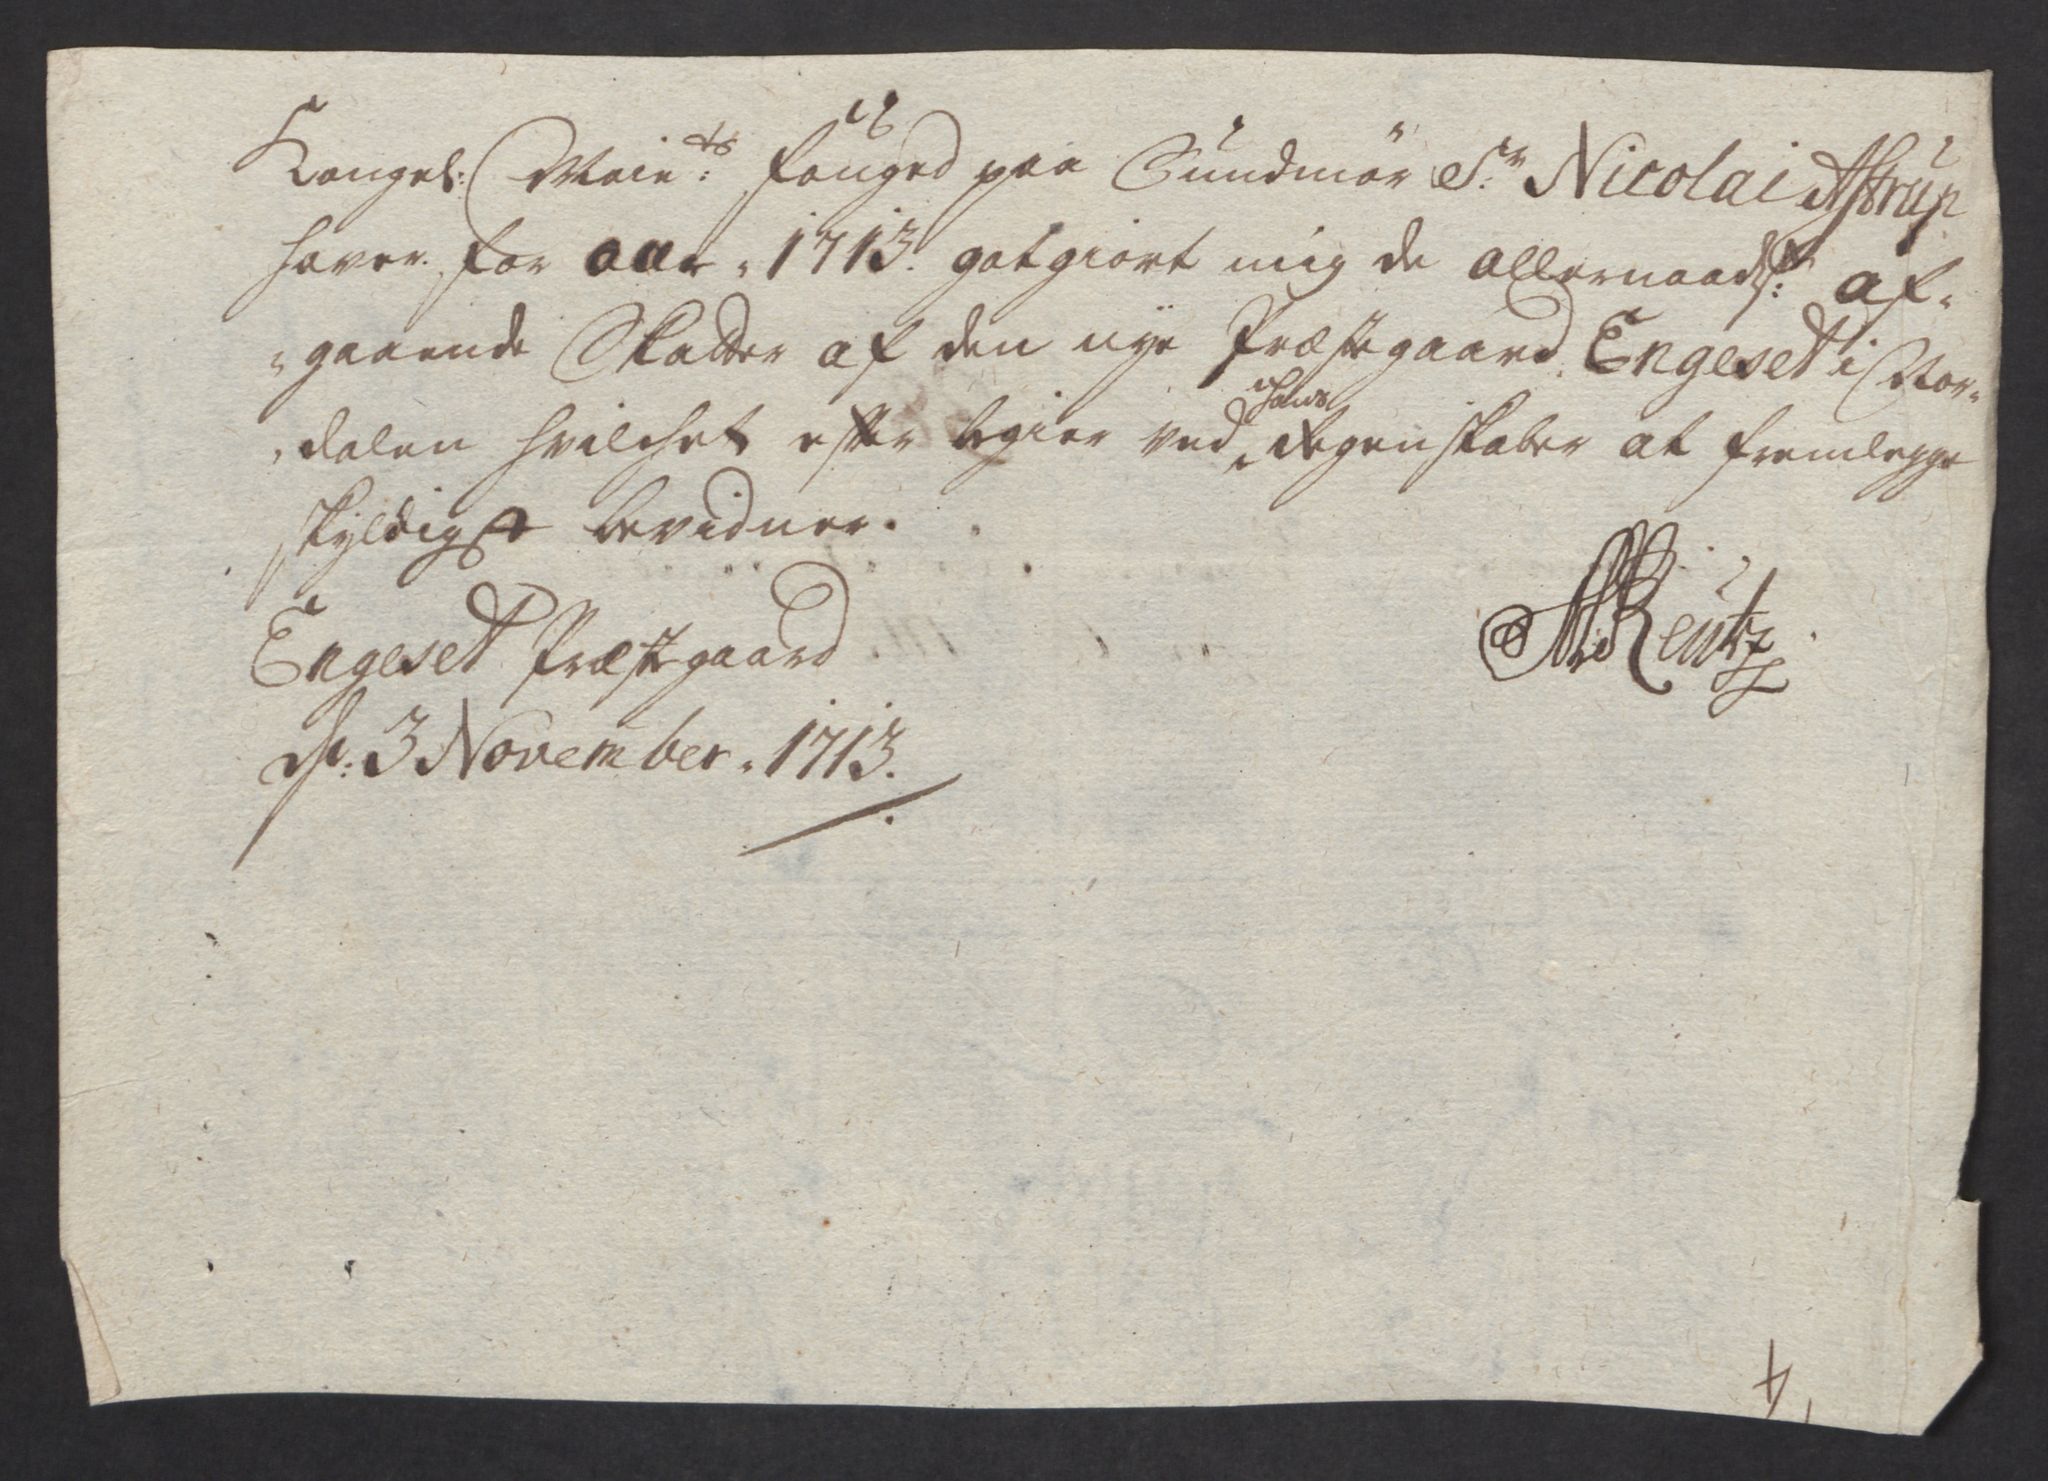 Kongel: Maie:ts Fouged paa Sundmör Sr: Nicolai Astrup
haver for aar 1713. gotgiort mig de allernaadst: af-
gaaende Skatter af den nye Præstegaard Engeset i Nor-
dalen hvilchet efter begier ved hans Regenskaber at fremlegge
skyldigst bevidner.
Engeset Præstegaard
d: 3 November. 1713.
Reutz